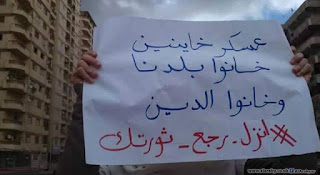 عسكر خاينين
خانوا بلدنا
وخانوا الدين
#انزل_رجع_ثورتك